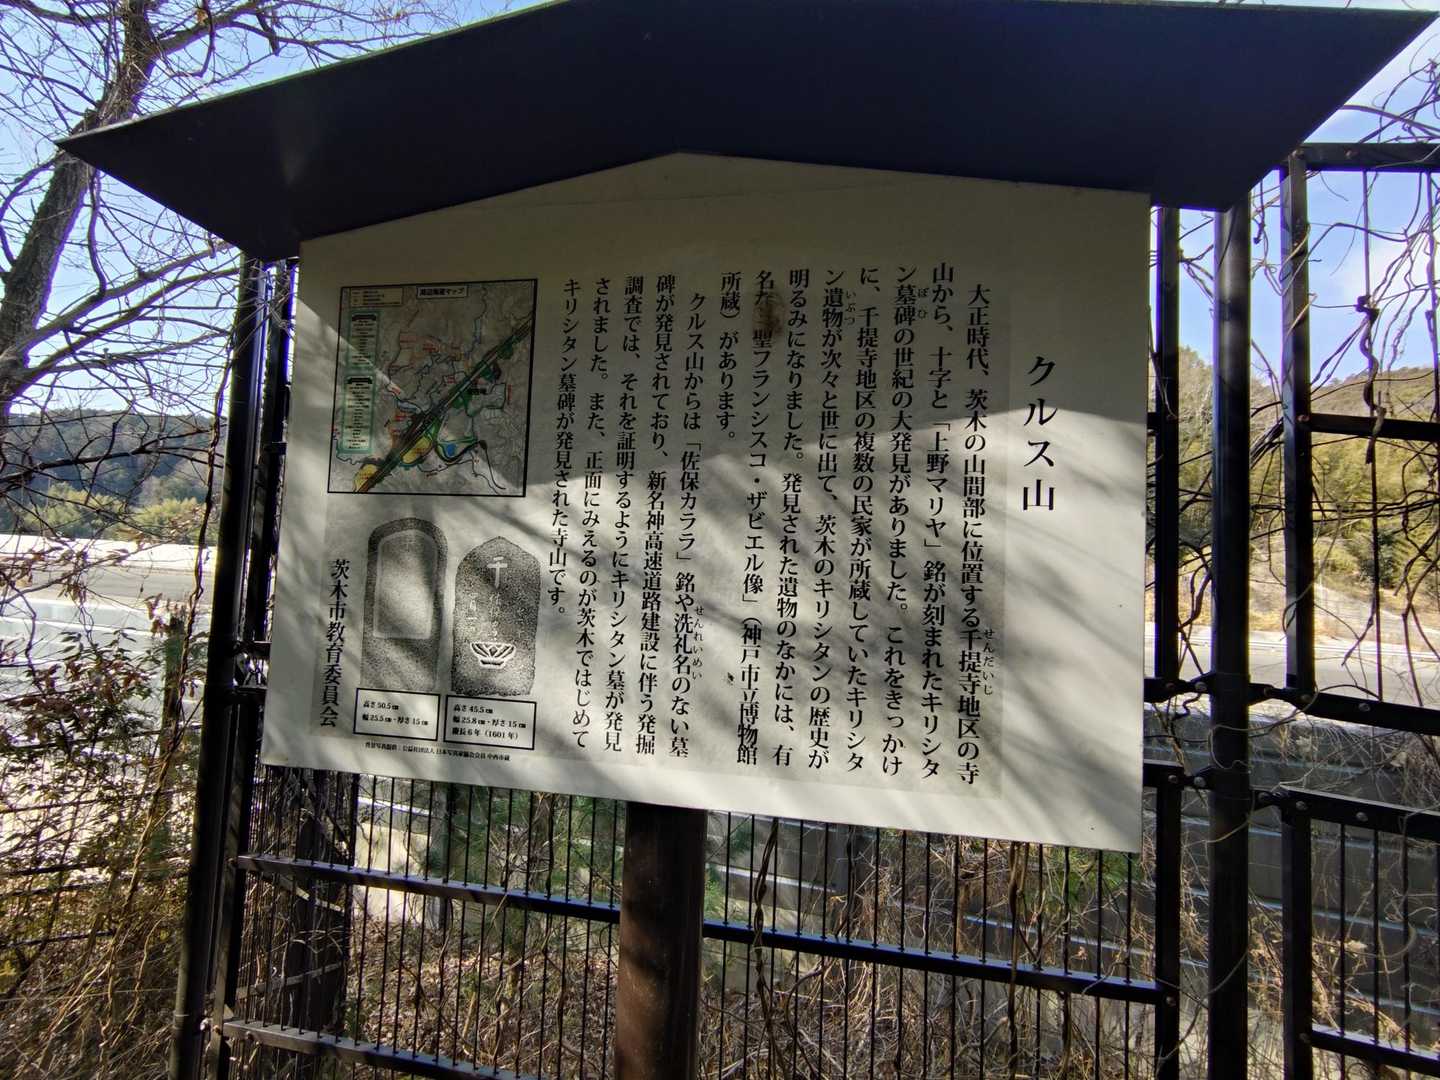 クルス山
大正時代、茨木の山間部に位置する千提寺地区の寺
せんだいじ
山から、十字と「上野マリヤ」銘が刻まれたキリシタ
ン墓碑の世紀の大発見がありました。これをきっかけ
ぼひ
に、千提寺地区の複数の民家が所蔵していたキリシタ
ン遺物が次々と世に出て、茨木のキリシタンの歴史が
いぶつ
明るみになりました。発見された遺物のなかには、有
名な「聖フランシスコ・ザビエル像」（神戸市立博物館
所蔵）があります。
クルス山からは「佐保カララ」銘や洗礼名のない墓
せんれいめい
碑が発見されており、新名神高速道路建設に伴う発掘
調査では、それを証明するようにキリシタン墓が発見
されました。また、正面にみえるのが茨木ではじめて
キリシタン墓碑が発見された寺山です。
周辺遺産マップ
高さ50.5㎝
幅25.5㎝・厚さ15㎝
高さ45.5㎝
幅25.8㎝・厚さ15㎝
慶長6年（1601年）
茨木市教育委員会